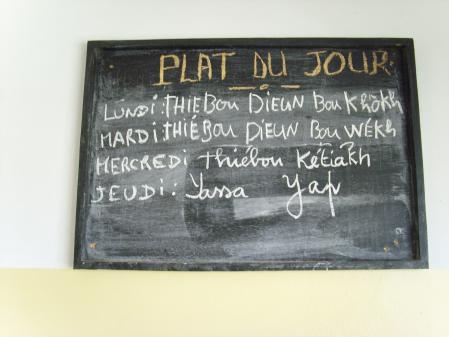 PLAT DU JOUR
LUNDI: THIEBOU DIEUN BOU KHÔKH
MARDI: THIÉBOU DIEUN BOU WÉKH
MERCREDI THIÉBOU KÉTIAKH
JEUDI: YASSA YAP